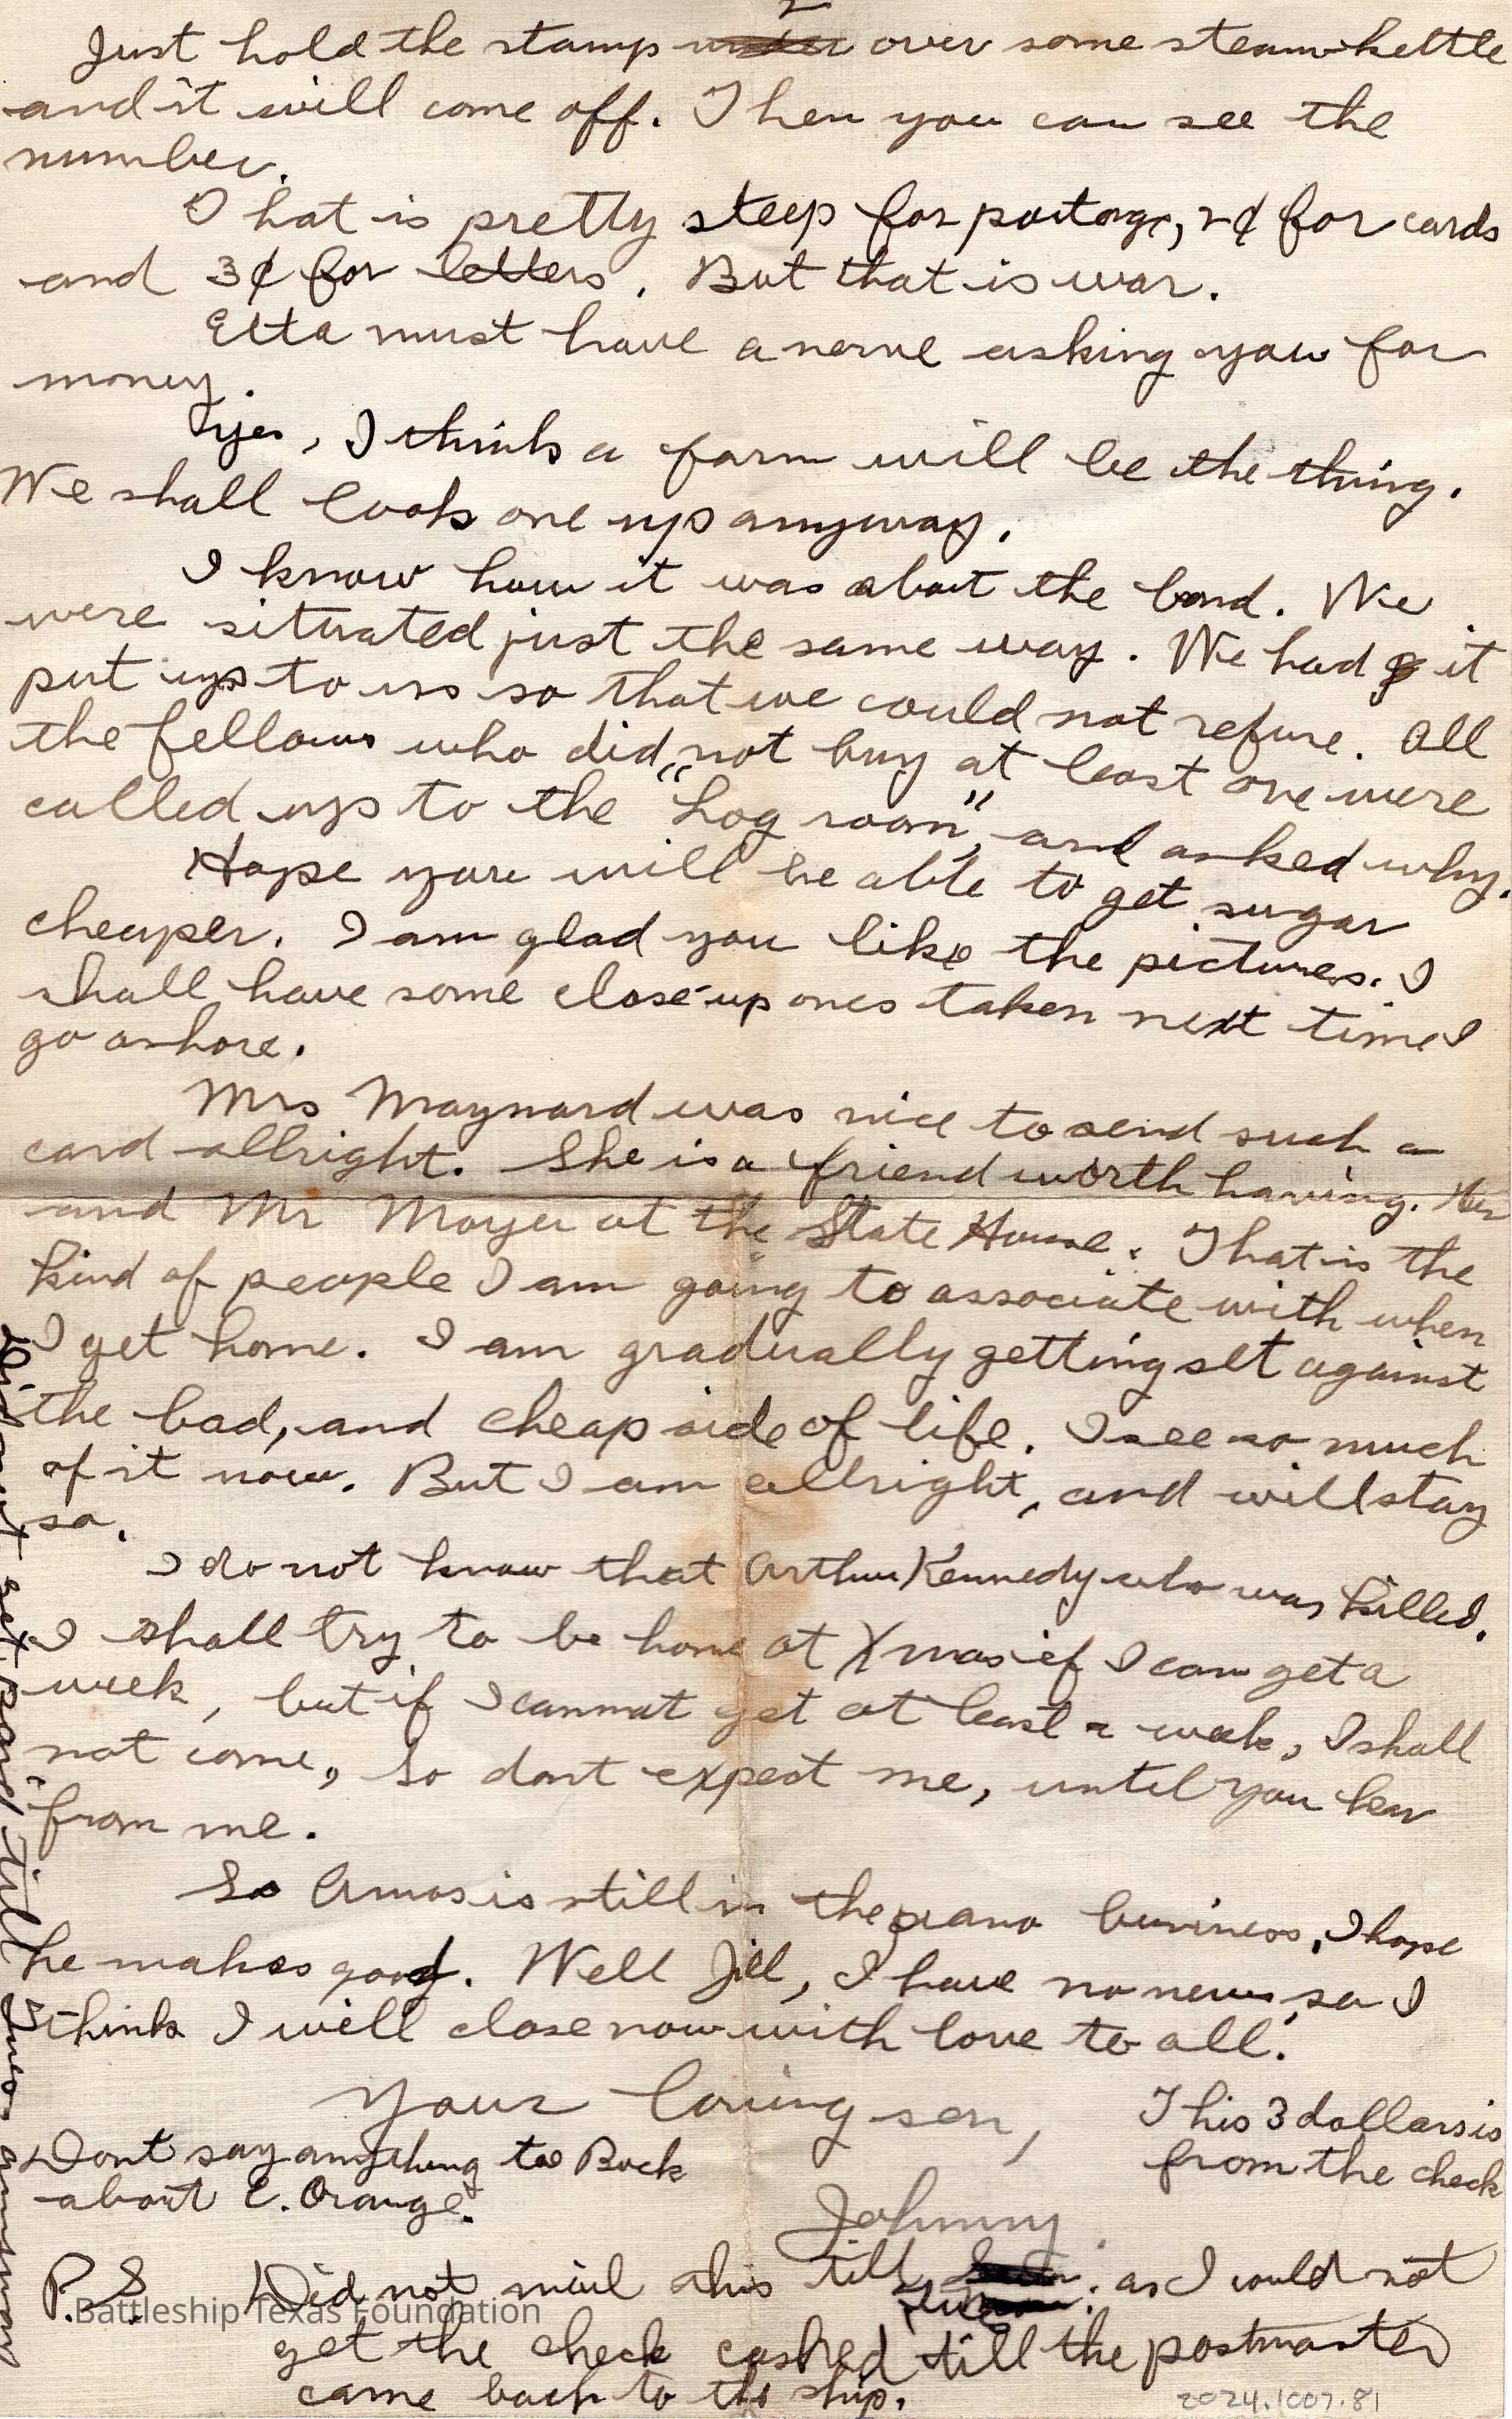 2
Just hold the stamp under over some steam kettle
and it will come off. Then you can see the
number.
That is pretty steep for postage, 2¢ for cards
and 3¢ for letters. But that is war.
Etta must have a nerve asking you for
money.
Yes, I think a farm will be the thing.
We shall look one up anyway.
I know how it was about the bond. We
were situated just the same way. We had it
put up to us so that we could not refuse. All
the fellows who did not buy at least one were
called up to the "Log room", and asked why.
Hope you will be able to get sugar
cheaper. I am glad you like the pictures. I
shall have some close-up ones taken next time I
go ashore.
Mrs Maynard was nice to send such a
card allright. She is a friend worth having. Her
and Mr Moyer at the State House. That is the
kind of people I am going to associate with when
I get home. I am gradually getting set against
the bad, and cheap side of life. I see so much
of it now. But I am allright, and will stay
so.
I do not know that Arthur Kennedy who was killed.
I shall try to be home at Xmas if I can get a
week, but if I cannot get at least a week, I shall
not come, so dont expect me, until you hear
from me.
So Amos is still in the piano business, I hope
he makes good. Well Jill, I have no news, so I
think I will close now with love to all.
Your loving son,
Johnny
This 3 dollars is
from the check
Dont say anything to Buck
about E. Orange.
P.S. Did not mail this till Tues. as I could not
get the check cashed till the postmaster
came back to the ship.
Did not get paid till Tues anyway
Battleship Texas Foundation
2024.1007.81